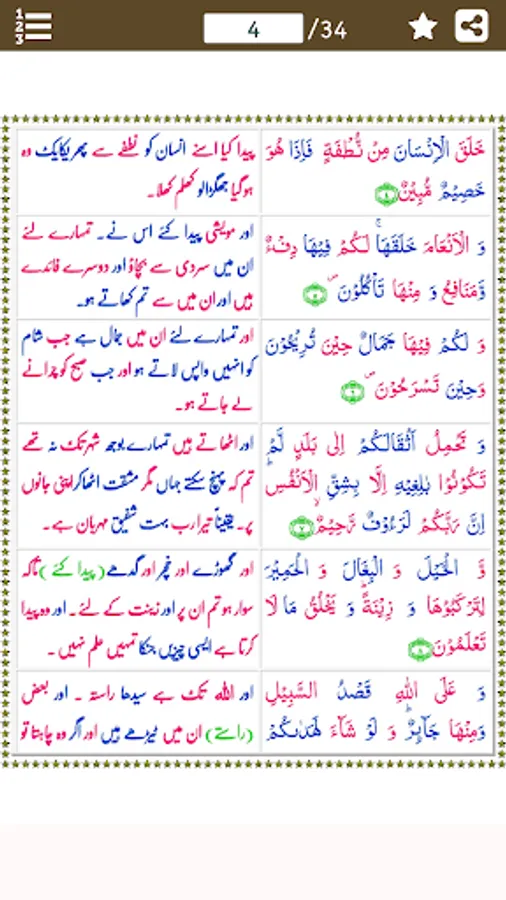 1
2
3
4
/34
خَلَقَ الْاِنْسَانَ مِنْ نُّطْفَةٍ فَاِذَا هُوَ
خَصِيْمٌ مُّبِيْنٌ ﴿۴﴾
پیدا کیا اسنے انسان کو نطفے سے پھر یکایک وہ
ہوگیا جھگڑالو کھلم کھلا۔
وَ الْاَنْعَامَ خَلَقَهَا ۚ لَكُمْ فِيْهَا دِفْءٌ
وَّمَنَافِعُ وَ مِنْهَا تَاْكُلُوْنَ ۪ ﴿۵﴾
اور مویشی پیدا کئے اس نے۔ تمہارے لئے
ان میں سردی سے بچاؤ اور دوسرے فائدے
ہیں اور ان میں سے تم کھاتے ہو۔
وَ لَكُمْ فِيْهَا جَمَالٌ حِيْنَ تُرِيْحُوْنَ
وَحِيْنَ تَسْرَحُوْنَ ۪ ﴿۶﴾
اور تمہارے لئے ان میں جمال ہے جب شام
کو انہیں واپس لاتے ہو اور جب صبح کو چرانے
لے جاتے ہو۔
وَ تَحْمِلُ اَثْقَالَكُمْ اِلٰى بَلَدٍ لَّمْ
تَكُوْنُوْا بٰلِغِيْهِ اِلَّا بِشِقِّ الْاَنْفُسِ ؕ
اِنَّ رَبَّكُمْ لَرَءُوْفٌ رَّحِيْمٌ ۙ ﴿۷﴾
اور اٹھاتے ہیں تمہارے بوجھ شہر تک نہ تھے
تم کہ پہنچ سکتے جہاں مگر مشقت اٹھا کر اپنی جانوں
پر۔ یقیناً تیرا رب بہت شفیق مہربان ہے۔
وَّ الْخَيْلَ وَ الْبِغَالَ وَ الْحَمِيْرَ
لِتَرْكَبُوْهَا وَ زِيْنَةً ؕ وَ يَخْلُقُ مَا لَا
تَعْلَمُوْنَ ﴿۸﴾
اور گھوڑے اور خچر اور گدھے (پیدا کئے) تاکہ
سوار ہو تم ان پر اور زینت کے لئے۔ اور وہ پیدا
کرتا ہے ایسی چیزیں جنکا تمہیں علم نہیں۔
وَ عَلَى اللّٰهِ قَصْدُ السَّبِيْلِ
وَمِنْهَا جَآىِٕرٌ ؕ وَ لَوْ شَآءَ لَهَدٰىكُمْ
اور اللہ تک ہے سیدھا راستہ ۔ اور بعض
(راستے) ان میں ٹیڑھے ہیں اور اگر وہ چاہتا تو